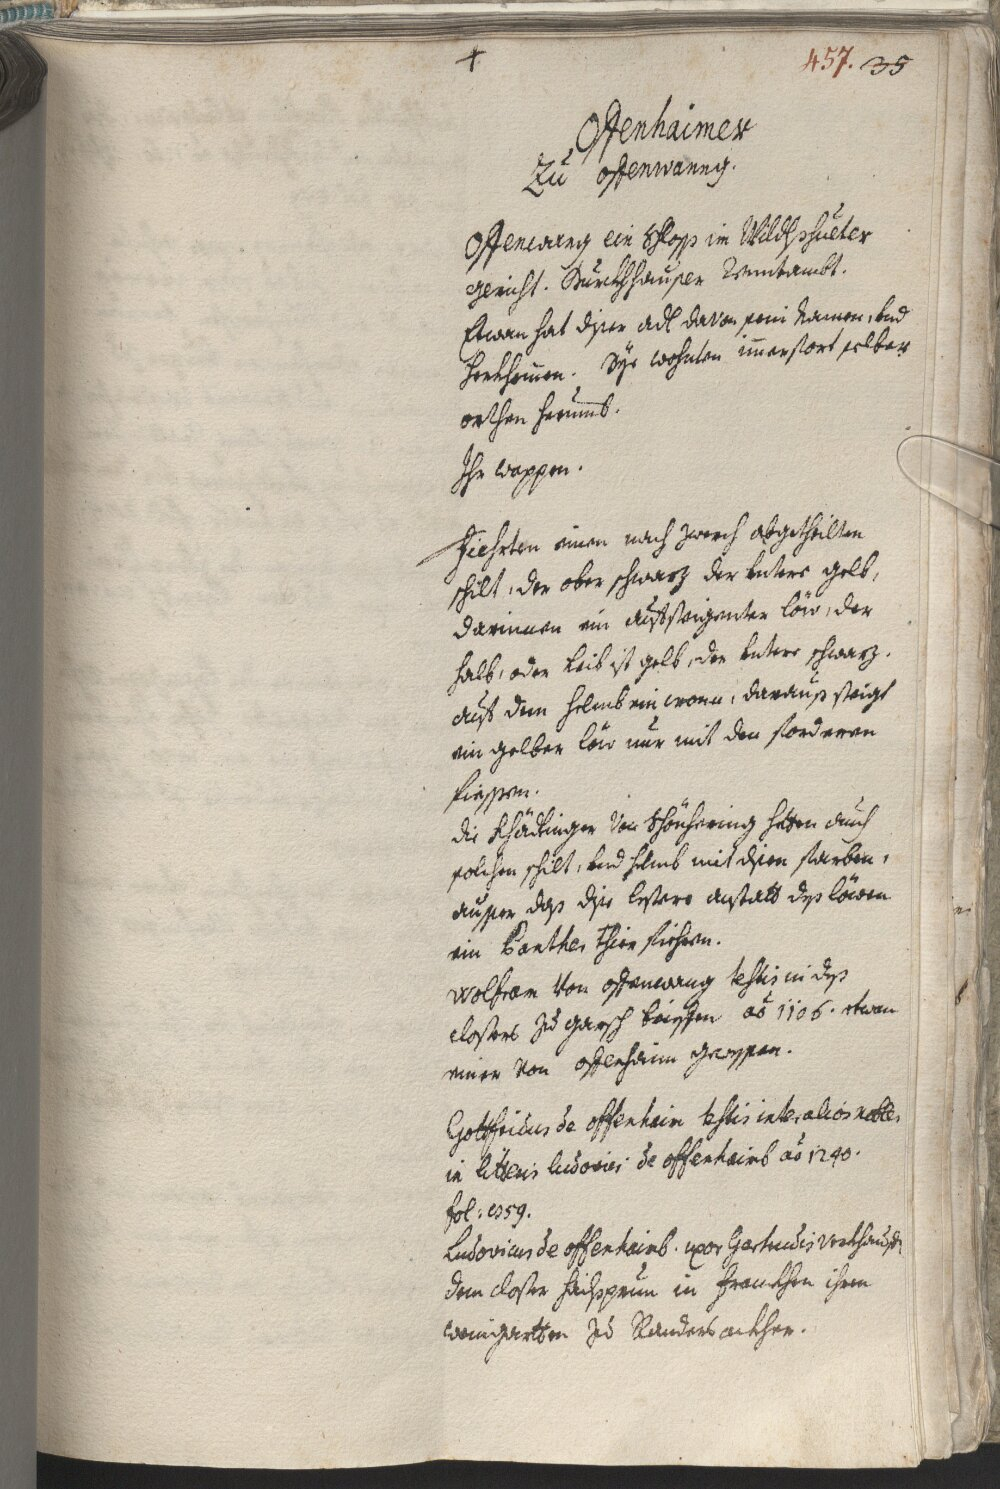 +
457. 35
Offenhaimer
Zu offenwanng.
Offenwanng ein Schloss im Wildtshueter
gericht. Burckhhauser Rentambt.
Etwan hat diser adl davon sein Namen, vnd
herkhomen. Sye wohnten immerfort selber
orthen herumb.
Ihr wappen.
Fiehrten einen nach zwerch abgetheilten
schilt, der ober schwarz der vntere gelb,
darinnen ein aufsteigenter löw, der
halb, ober leib ist gelb, der vntere schwarz.
auf dem helmb ein cronn, darauss steigt
ein gelber löw nur mit den fordern
fiessen.
die von Schönhering hetten auch
solchen schilt, vnd helmb mit disen farben,
ausser dass dise lestere anstatt dess löwen
ein Panther thier fiehren.
Wolfram von offenwang testis in dess
closters zu garsh brieffen aõ 1106. etwan
einer von offenhaim gewessen.
Gottfridus de offenheim testis inter alios nobles
in litteris ludovici de offenhaimb aõ 1240.
fol: 1359.
Ludovicus de offenhaimb. uxor Gertrudis verkhaufft
dem closter Hailssprun in Franckhen ihren
weingartten zu Randersackher.